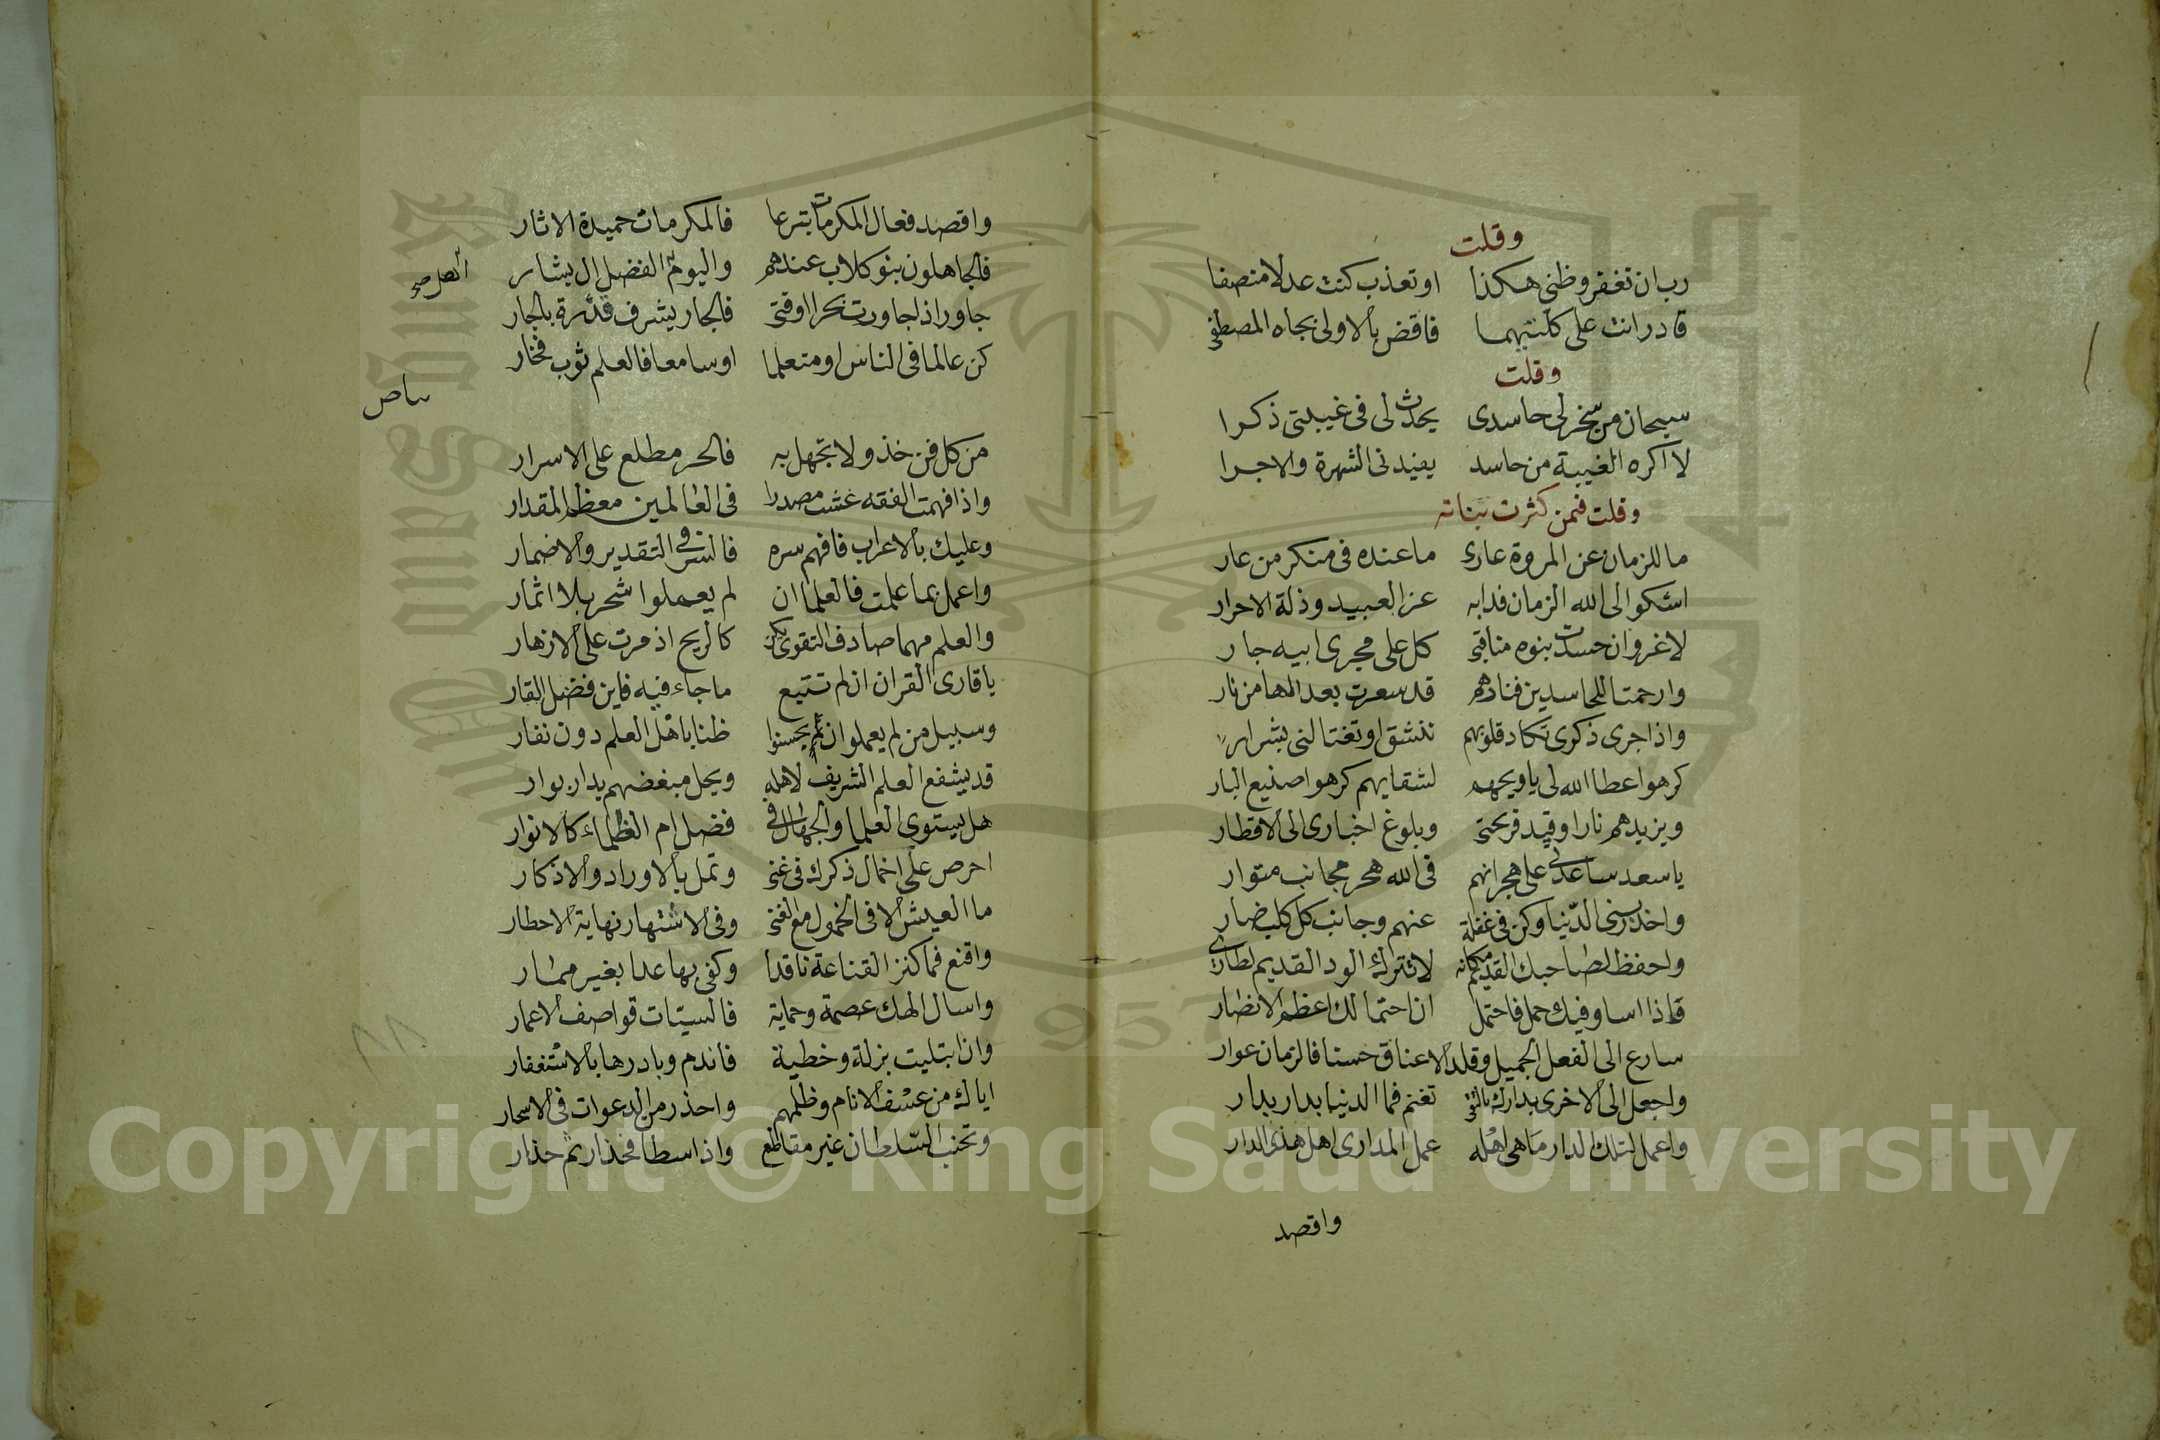 وقلت
رب ان تغفر وظني هكذا او تعذب كنت عدلا منصفا
قادر انت على كلتيهما فاقض بالاولى بجاه المصطفى
وقلت
سبحان من سخر لي حاسدى يحدث لى فى غيبتى ذكرا
لا اكره الغيبة من حاسد يفيدنى الشهرة والاجرا
وقلت فمن كثرت بناته
ما للزمان عن المروة عارى ما عنده فى منكر من عار
اشكو الى الله الزمان فدابه عز العبيد وذلة الاحرار
لا غرو ان حسدت بنوه مناقبى كل على مجرى ابيه جار
وارحمتا للحاسدين فنارهم قد سعرت بعد المها من نار
واذا جرى ذكرى تكاد قلوبهم تنشق او تغتالنى بشرار
كرهوا عطا الله لى يا ويحهم لشقايهم كرهوا صنيع البار
ويزيدهم نارا وقيد قريحتى وبلوغ اخبارى الى الاقطار
يا سعد ساعدنى على هجرانهم فى الله هجر مجانب متوار
واحذر بنى الدنيا وكن فى غفلة عنهم وجانب كل كلب ضار
واحفظ لصاحبك القديم مكانه لا تترك الود القديم لطارى
فاذا اسا وفيك حمل فاحتمل ان احتمالك اعظم الانصار
سارع الى الفعل الجميل وقلد الاعناق حسنا فالزمان عوار
واجعل الى الاخرى بدارك بالتقى تغنم فما الدنيا بدار بدار
واعمل لتلك الدار ما هى اهله عمل المدارى اهل هذى الدار
واقصد
واقصد فعال المكرمات تبرعا فالمكرمات حميدة الاثار
فالجاهلون بنو كلاب عندهم واليوم الفضل ال يشار
جاور اذا جاورت بحرا او فتى فالجار يشرف قدره بالجار
كن عالما فى الناس او متعلما او سامعا فالعلم ثوب فخار
من كل فن خذ ولا تجهل به فالحر مطلع على الاسرار
واذا فهمت الفقه عشت مصدرا فى العالمين معظم المقدار
وعليك بالاعراب فافهم سره فالسر فى التقدير والاضمار
واعمل بما علمت فالعلما ان لم يعملوا شجر بلا اثمار
والعلم مهما صادف التقوى يكن كالريح اذ مرت على الازهار
يا قارى القران ان لم تتبع ما جاء فيه فاين فضل القار
وسبيل من لم يعملوا ان يحسنوا ظنا باهل العلم دون نفار
قد يشفع العلم الشريف لاهله ويحل مبغضهم بدار بوار
هل يستوى العلما والجهال فى فضل ام الظلماء كالانوار
احرص على اخمال ذكرك فى غنى وتمل بالاوراد والاذكار
ما العيش الا فى الخمول مع الغنى وفى الاشتهار نهاية الاحطار
واقنع فما كنز القناعة نافدا وكفى بها عدا بغير ممار
واسال الهك عصمة وحماية فالسيات قواصف الاعمار
وان ابتليت بزلة وخطية فاندم وبادرها بالاستغفار
اياك من عسف الانام وظلمهم واحذر من الدعوات فى الاسحار
وتجنب السلطان غير مقاطع واذا سطا فحذار ثم حذار
King Saud University
1957
Copyright © King Saud University